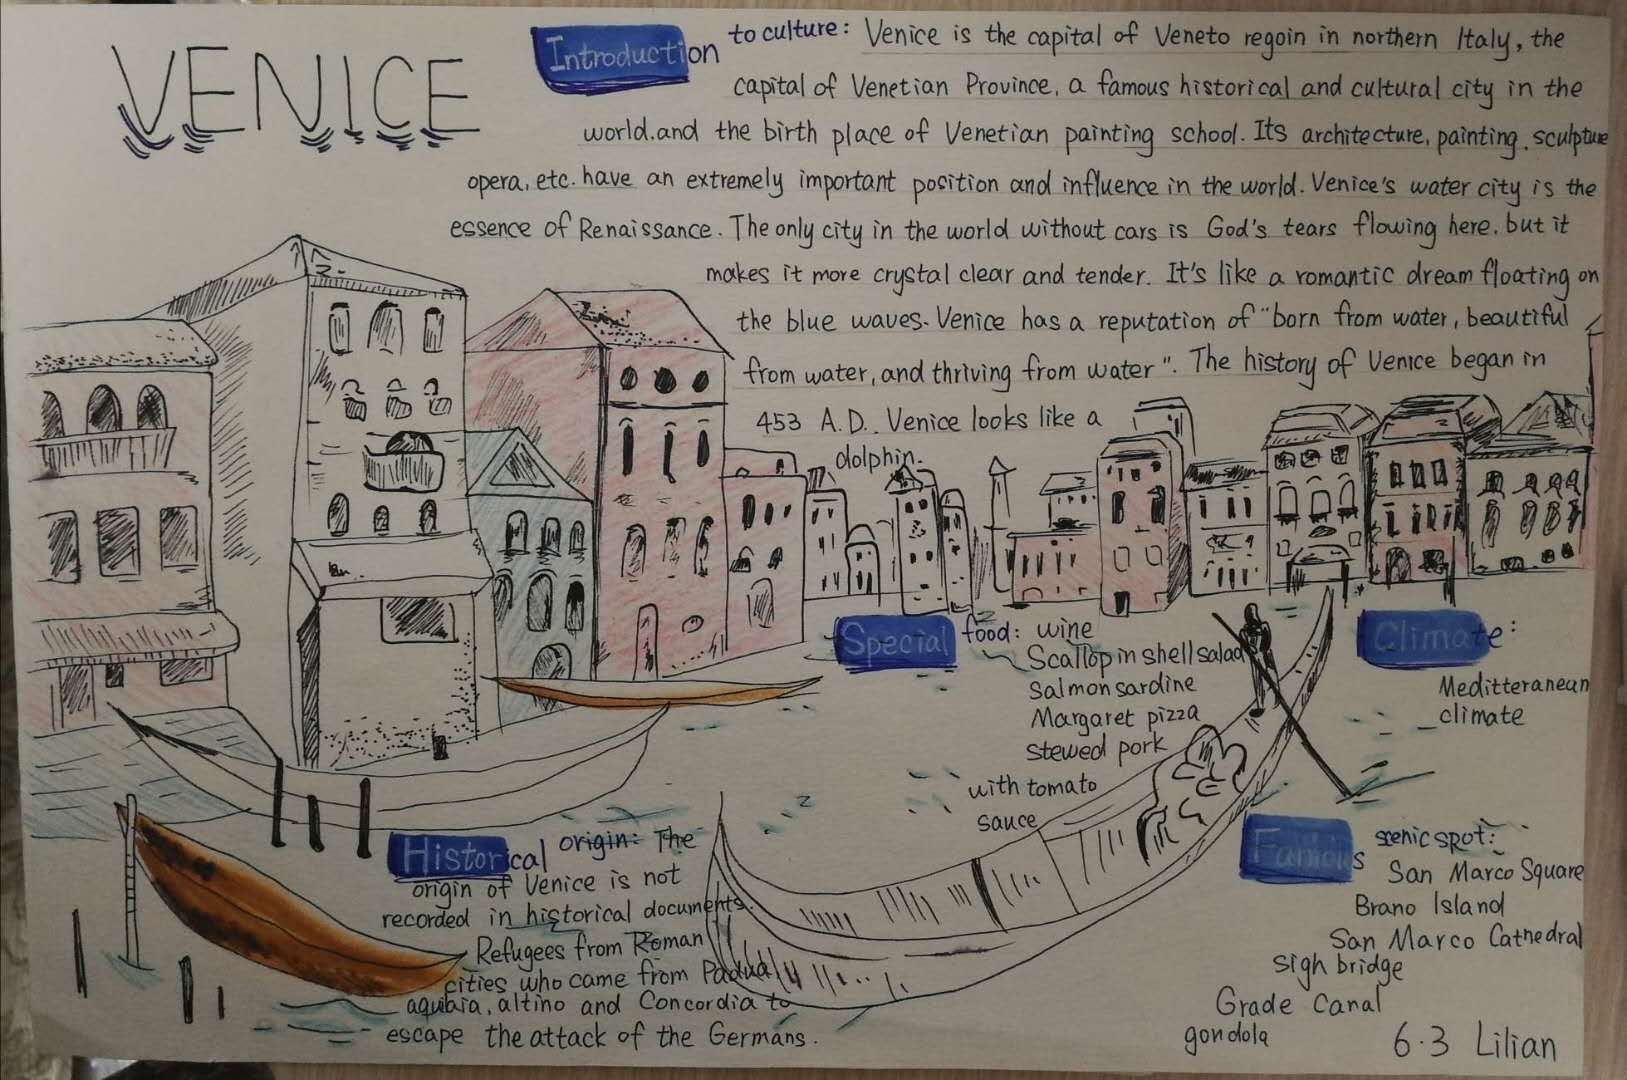 VENICE
Introduction to culture: Venice is the capital of Veneto regoin in northern Italy, the
capital of Venetian Province, a famous historical and cultural city in the
world.and the birth place of Venetian painting school. Its architecture, painting, sculpture
opera, etc. have an extremely important position and influence in the world. Venice's water city is the
essence of Renaissance. The only city in the world without cars is God's tears flowing here, but it
makes it more crystal clear and tender. It's like a romantic dream floating on
the blue waves. Venice has a reputation of "born from water, beautiful
from water, and thriving from water". The history of Venice began in
453 A.D. Venice looks like a
dolphin.
Special food: wine
Scallop in shell salad
Salmon sardine
Margaret pizza
stewed pork
with tomato
sauce
Climate:
Meditteranean
climate
Historical origin: The
origin of Venice is not
recorded in historical documents.
Refugees from Roman
cities who came from Padua
aqubaia, altino and Concordia to
escape the attack of the Germans.
Famous scenic spot:
San Marco Square
Brano Island
San Marco Cathedral
sigh bridge
Grade Canal
gondola
6.3 Lilian